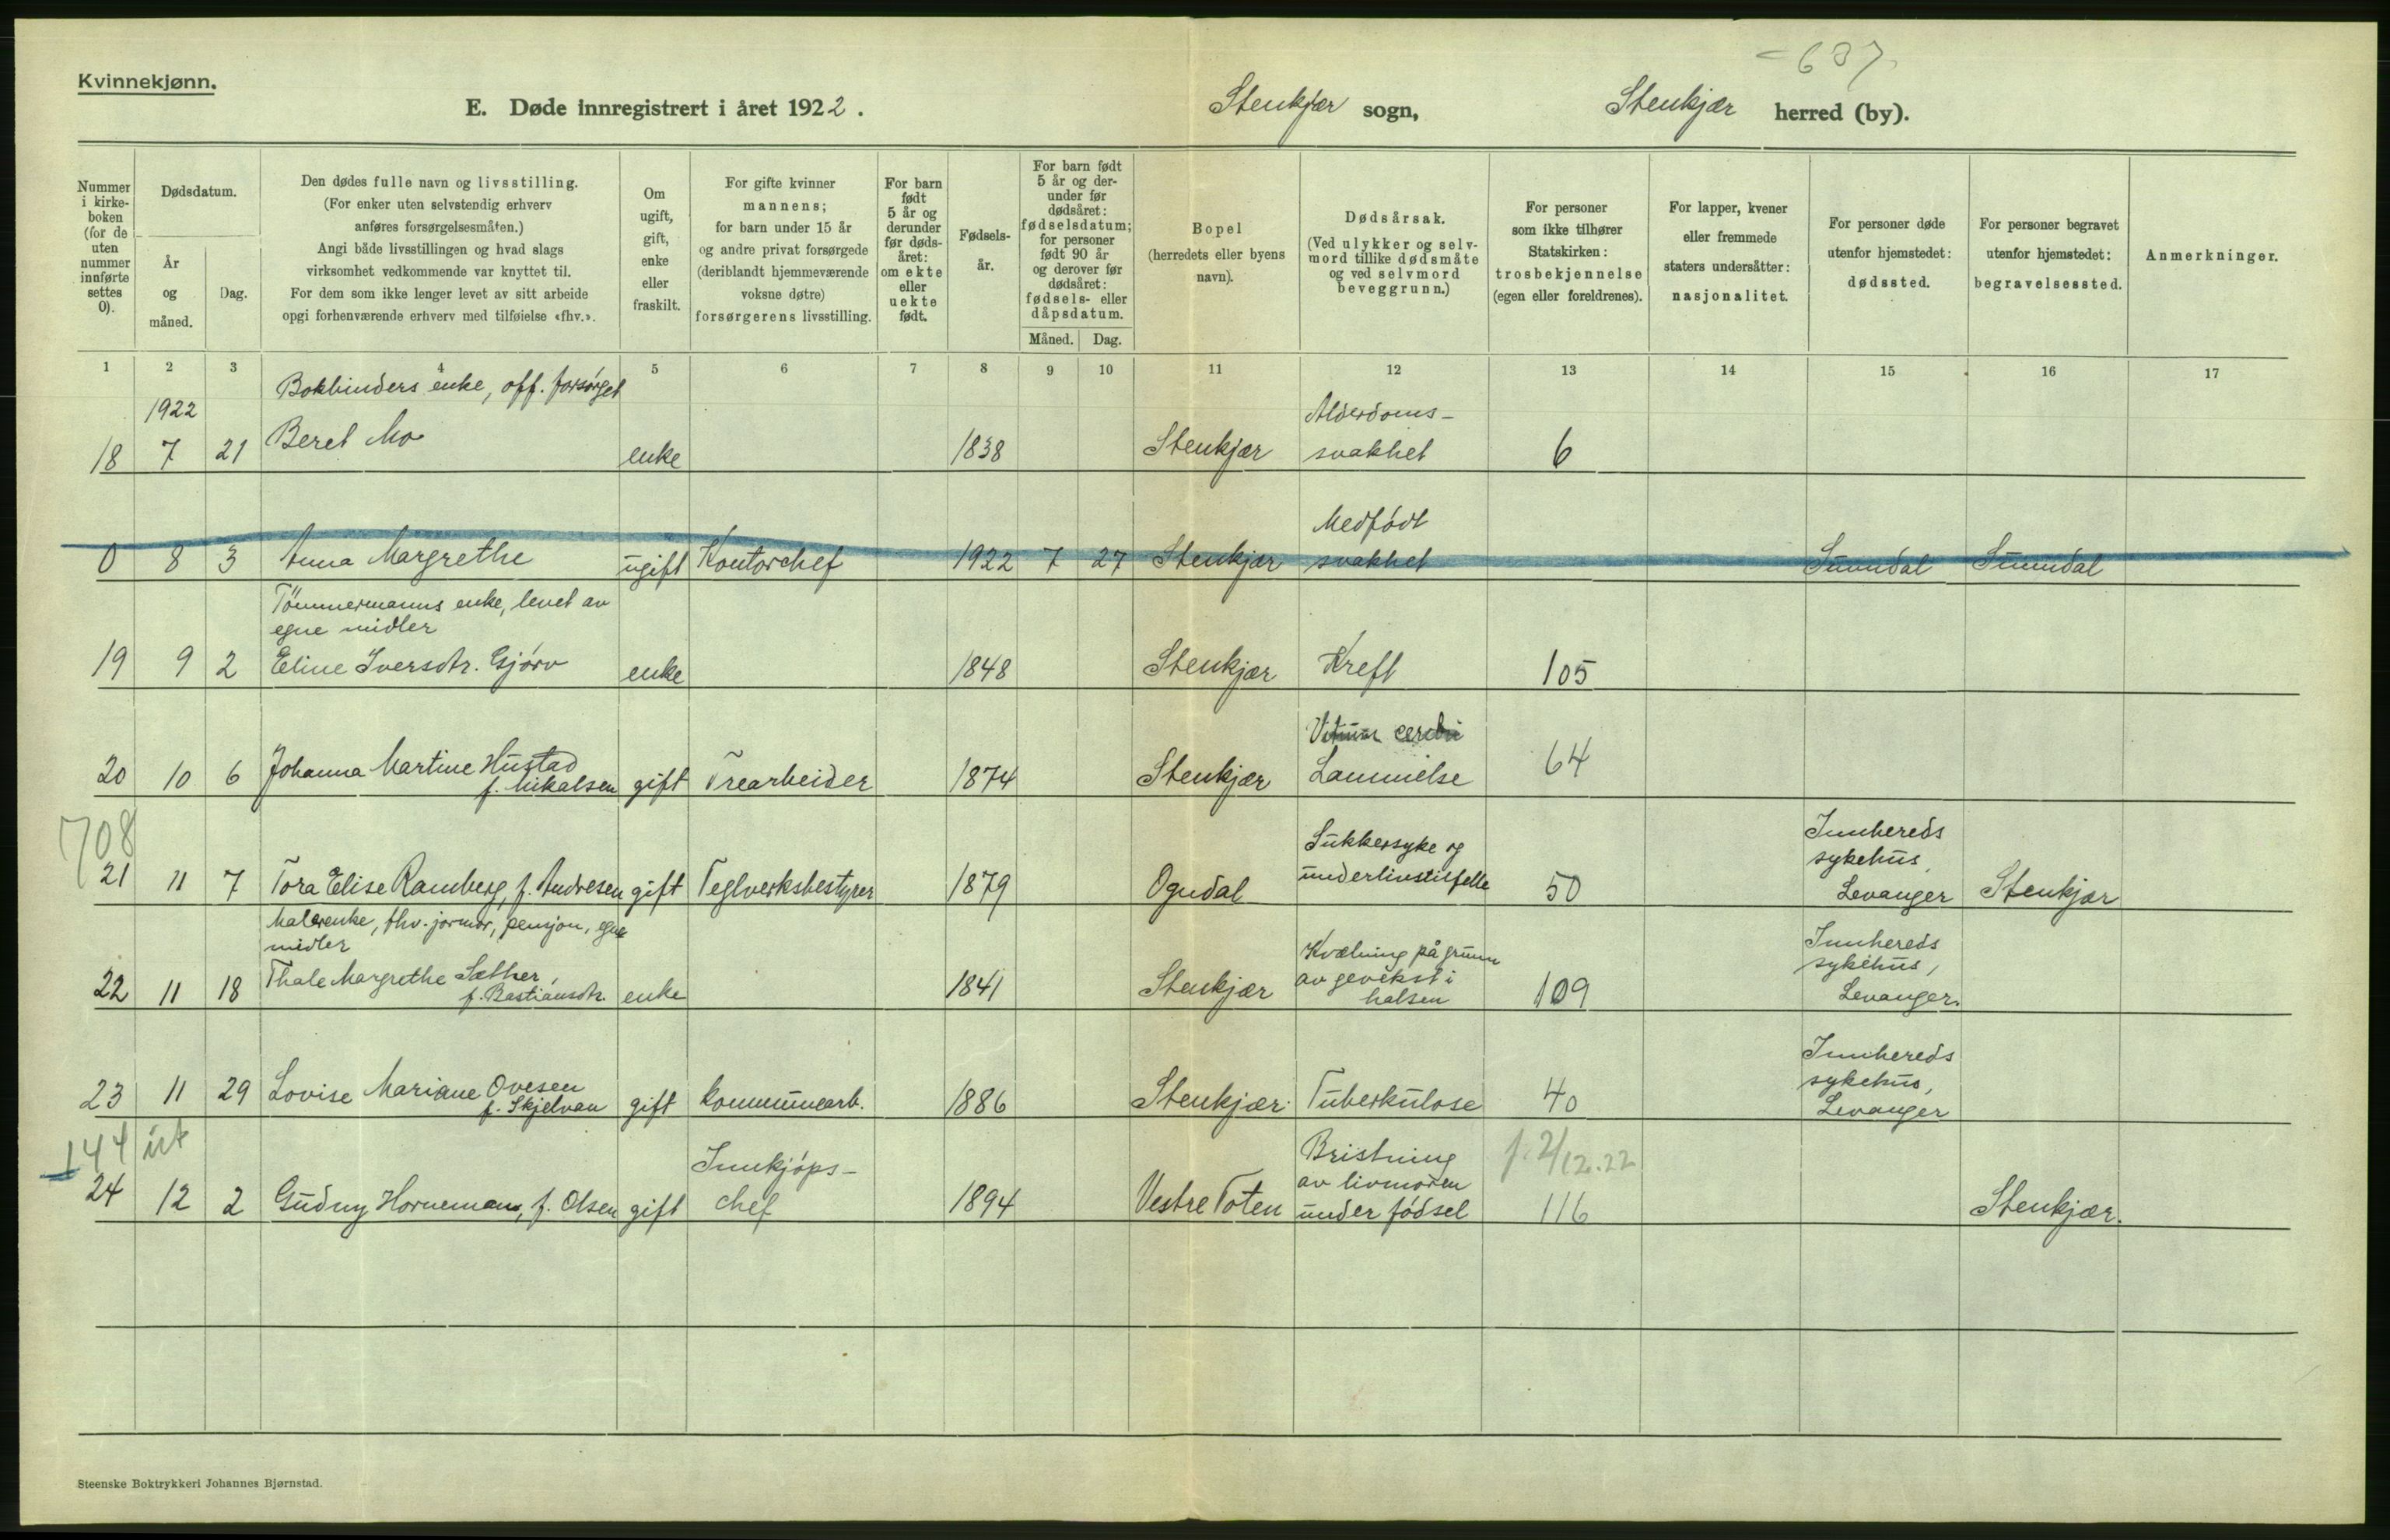 637
Kvinnekjønn.
E. Døde innregistrert i året 1922. Stenkjær sogn, Stenkjær herred (by).
Nummer i kirkeboken (for de uten nummer innførte settes 0).
Dødsdatum.
År og måned.
Dag.
Den dødes fulle navn og livsstilling.
(For enker uten selvstendig erhverv
anføres forsørgelsesmåten.)
Angi både livsstillingen og hvad slags
virksomhet vedkommende var knyttet til.
For dem som ikke lenger levet av sitt arbeide
opgi forhenværende erhverv med tilføielse «fhv.».
Om ugift, gift, enke eller fraskilt.
For gifte kvinner
mannens;
for barn under 15 år
og andre privat forsørgede
(deriblandt hjemmeværende
voksne døtre)
forsørgerens livsstilling.
For barn født 5 år og derunder før dødsåret: om ekte eller uekte født.
Fødselsår.
For barn født 5 år og derunder før dødsåret: fødselsdatum; for personer født 90 år og derover før dødsåret: fødsels- eller dåpsdatum.
Måned. Dag.
Bopel
(herredets eller byens
navn).
Dødsårsak.
(Ved ulykker og selvmord tillike dødsmåte og ved selvmord beveggrunn.)
For personer
som ikke tilhører
Statskirken:
trosbekjennelse
(egen eller foreldrenes).
For lapper, kvener
eller fremmede
staters undersåtter:
nasjonalitet.
For personer døde
utenfor hjemstedet:
dødssted.
For personer begravet
utenfor hjemstedet:
begravelsessted.
Anmerkninger.
1 2 3 4 5 6 7 8 9 10 11 12 13 14 15 16 17
Bokbinders enke, off. forsørget
1922 Alderdoms-
18 7 21 Beret Mo enke 1838 Stenkjær svakhet 6
Medfødt
0 8 3 Anna Margrethe ugift Kontorchef 1922 7 27 Stenkjær svakhet Sunndal Sunndal
Tömmermanns enke, levet av
egne midler
19 9 2 Eline Iversdtr. Gjørv enke 1848 Stenkjær Kreft 105
Vitium cerebri
20 10 6 Johanna Martine Hustad
f. Mikalsen gift Trearbeider 1874 Stenkjær Lammelse 64
708
Sukkersyke og Innhereds
underlivstilfelle sykehus,
21 11 7 Tora Elise Ramberg, f. Andresen gift Teglverksbestyrer 1879 Ogndal 50 Levanger Stenkjær
Malerenke, fhv. jormor, pensjon, egne
midler
Kvælning på grunn Innhereds
22 11 18 Thale Margrethe Sæther, av gevekst i sykehus,
f. Bastiansdtr. enke 1841 Stenkjær halsen 109 Levanger.
Innhereds
sykehus,
23 11 29 Lovise Mariane Ovesen
f. Skjelvan gift kommunearb. 1886 Stenkjær Tuberkulose 40 Levanger
144 ut
Innkjøps- Bristning f. 2/12.22
av livmoren
24 12 2 Gudny Horneman, f. Olsen gift chef 1894 Vestre Toten under fødsel 116 Stenkjær.
Steenske Boktrykkeri Johannes Bjørnstad.